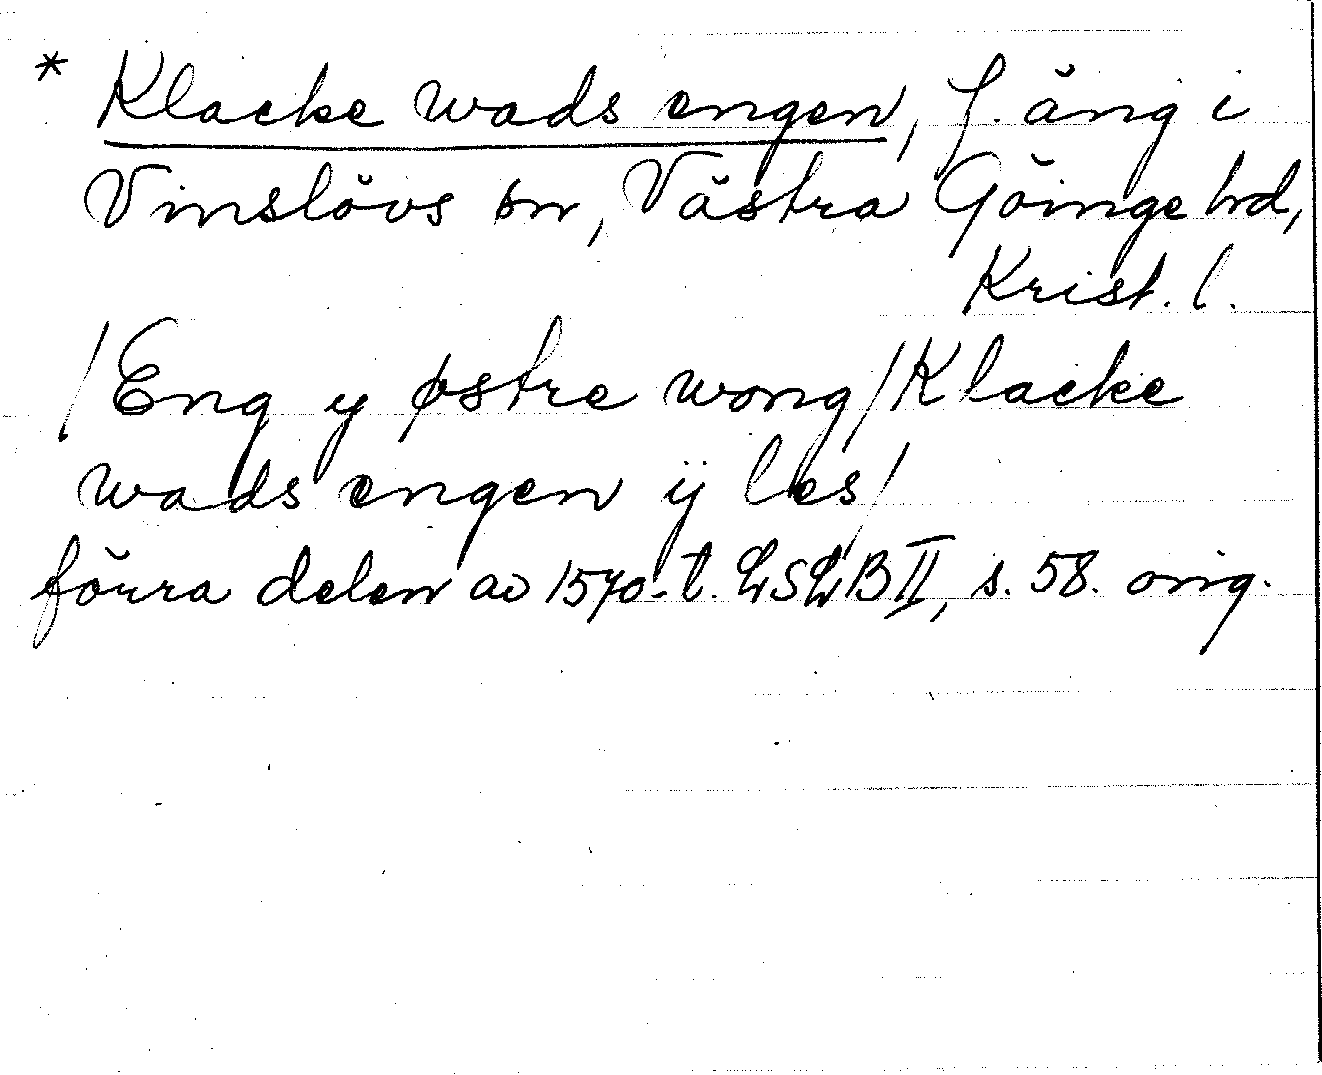 * Klacke wads engen, f. äng i
Vinslövs sn, Västra Göinge hd,
Krist. l.
/Eng y østre wong/Klacke
wads engen ÿ les/
förra delen av 1570-t. LSLB II, s. 58. orig.